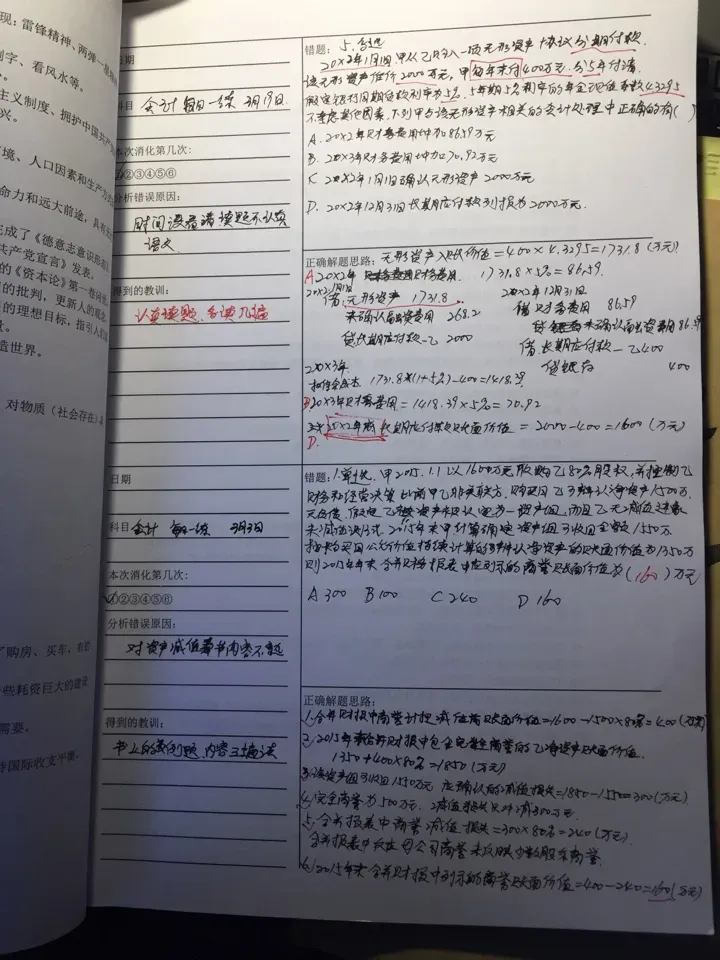 现：雷锋精神、两弹一星精神
刻字、看风水等。
主义制度、拥护中国共产
兴。
环境、人口因素和生产方
命力和远大前途，具有
完成了《德意志意识形态
共产党宣言》发表。
的《资本论》第一卷问世
的批判，更新人的观念
的理想目标，指引人们
造世界。
对物质（社会存在）
了购房、买车、有价
一些耗资巨大的建设
需要。
持国际收支平衡
日期
科目 会计 每日一练 3月19日
本次消化第几次：
①②③④⑤⑥
分析错误原因：
时间没看清 读题不认真
得到的教训：
认真读题，多读几遍
错题：5. 多选
20×2年1月1日，甲从乙购入一项无形资产，协议分期付款.
该无形资产作价2000万元，甲每年末付400万元，分5年付清.
假定银行同期贷款利率为5%，5年期5%利率的年金现值系数4.3295
不考虑其他因素，下列甲与该无形资产相关的会计处理中正确的有( )
A. 20×2年财务费用增加86.59万元
B. 20×3年财务费用增加70.92万元
C. 20×2年1月1日确认无形资产2000万元
D. 20×2年12月31日长期应付款列报为2000万元.
正确解题思路：无形资产入账价值=400×4.3295=1731.8(万元)
A 20×2年 财务费用 1731.8×5%=86.59.
20×2.1月1日
借：无形资产 1731.8
未确认融资费用 268.2
贷：长期应付款-乙 2000
20×2年12月31日
借：财务费用 86.59
贷：未确认融资费用 86.59
借：长期应付款-乙 400
贷：银存 400
20×3年
1731.8×(1+5%)-400=1418.39
B 20×3年财务费用=1418.39×5%=70.92
20×2年底 长期应付款账面价值=2000-400=1600(万元)
D.
日期
科目 会计 每日一练 3月3日
本次消化第几次：
①②③④⑤⑥
分析错误原因：
对资产减值着书内容不熟
得到的教训：
书上的例题、内容
错题：1.单选. 甲2015.1.1以1600万元取购乙80%股权，并控制乙
财务和经营决策. 此前甲乙非关联方. 购买日乙可辨认净资产1500万.
无负债. 假定乙整资产被认定为一资产组，而且乙无减值迹象
未减值测试. 2015年末甲计算确定资产组可收回金额1550万.
按购买日公允价值持续计算的可辨认净资产的账面价值为1350万
则2015年年末合并财务报表中应列示的商誉账面价值为(160)万元
A 300 B 100 C 240 D 160
正确解题思路：
1. 合并财报中商誉计提减值前账面价值=1600-1500×80%=400(万元)
2. 2015年末合并财报中包含完全商誉的乙净资产账面价值
1350+400÷80%=1850(万元)
3. 该资产组可收回1550万元 应确认的减值损失=1850-1550=300(万元)
4. 完全商誉为500万元. 减值损失只冲减300万元.
5. 合并报表中商誉减值损失=300×80%=240(万元)
合并报表中只反映母公司商誉 未反映少数股东商誉
6. 2015年末合并财报中列示的商誉账面价值=400-240=160(万元)